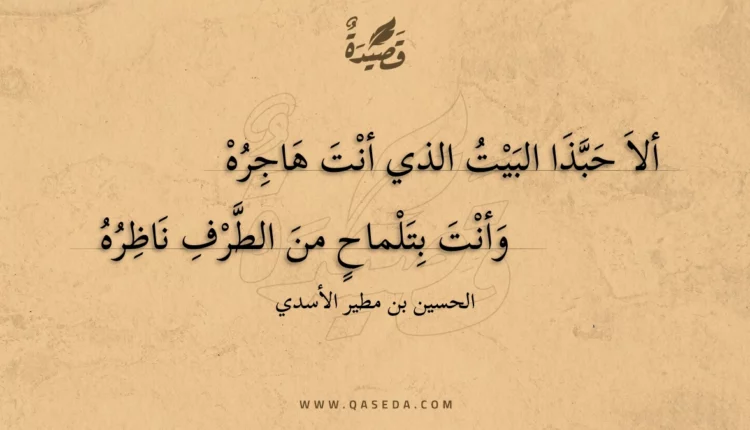 قَصِيْدَةٌ
ألاَ حَبَّذَا البَيْتُ الذي أنْتَ هَاجِرُهْ
وَأنْتَ بِتَلْماحٍ منَ الطَّرْفِ نَاظِرُهُ
الحسين بن مطير الأسدي
WWW.QASEDA.COM